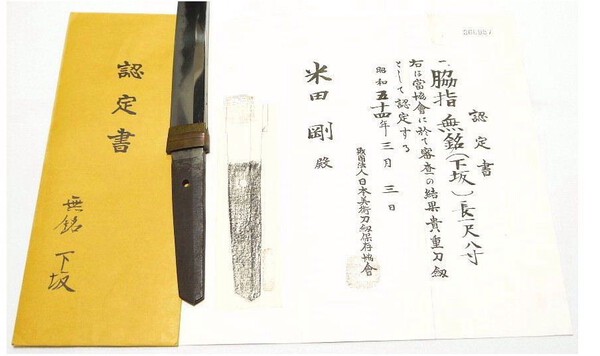 認定書
一、脇指 無銘(下坂) 長一尺八寸
右は當協會に於て審査の結果貴重刀剣
として認定する
昭和五十四年三月三日
財團法人日本美術刀剣保存協會
米田 剛 殿
認定書
無銘 下坂